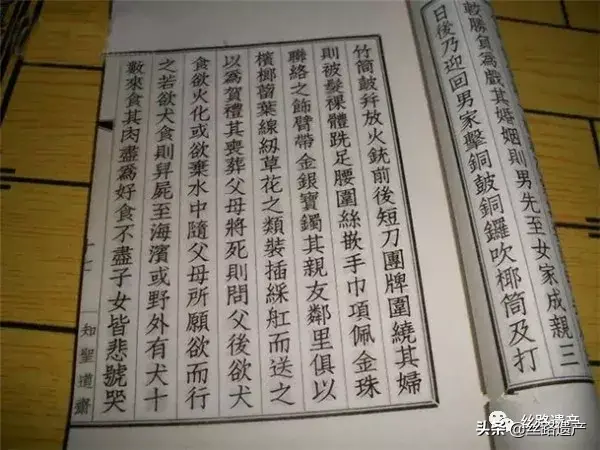 乾勝負為戲其婚姻則男先至女家成親三
日後乃迎回男家擊銅皷銅鑼吹椰筒及打
竹筒皷并放火銃前後短刀團牌圍繞其婦
則被髮裸體跣足腰圍絲嵌手巾項佩金珠
聯絡之飾臂帶金銀寶鐲其親友鄰里俱以
檳榔蒥葉線紉草花之類裝插綵舡而送之
以為賀禮其喪葬父母將死則問父後欲犬
食欲火化或欲棄水中隨父母所願欲而行
之若欲犬食則舁屍至海濱或野外有犬十
數來食其肉盡為好食不盡子女皆悲號哭
十七
知聖道齋
丝路遗产
头条@丝路遗产